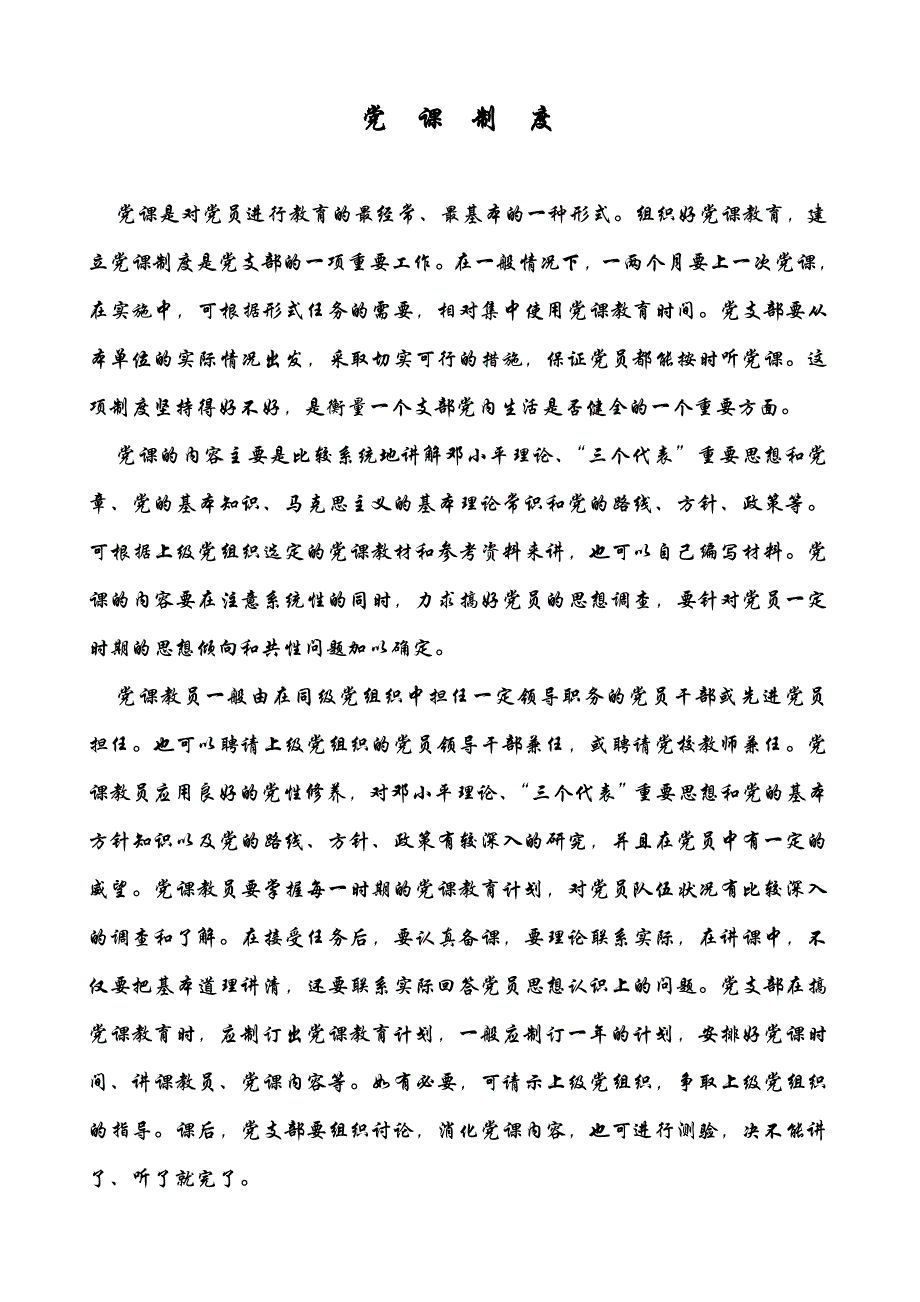 党 课 制 度
党课是对党员进行教育的最经常、最基本的一种形式。组织好党课教育，建
立党课制度是党支部的一项重要工作。在一般情况下，一两个月要上一次党课，
在实施中，可根据形式任务的需要，相对集中使用党课教育时间。党支部要从
本单位的实际情况出发，采取切实可行的措施，保证党员都能按时听党课。这
项制度坚持得好不好，是衡量一个支部党内生活是否健全的一个重要方面。
党课的内容主要是比较系统地讲解邓小平理论、“三个代表”重要思想和党
章、党的基本知识、马克思主义的基本理论常识和党的路线、方针、政策等。
可根据上级党组织选定的党课教材和参考资料来讲，也可以自己编写材料。党
课的内容要在注意系统性的同时，力求搞好党员的思想调查，要针对党员一定
时期的思想倾向和共性问题加以确定。
党课教员一般由在同级党组织中担任一定领导职务的党员干部或先进党员
担任。也可以聘请上级党组织的党员领导干部兼任，或聘请党校教师兼任。党
课教员应用良好的党性修养，对邓小平理论、“三个代表”重要思想和党的基本
方针知识以及党的路线、方针、政策有较深入的研究，并且在党员中有一定的
威望。党课教员要掌握每一时期的党课教育计划，对党员队伍状况有比较深入
的调查和了解。在接受任务后，要认真备课，要理论联系实际，在讲课中，不
仅要把基本道理讲清，还要联系实际回答党员思想认识上的问题。党支部在搞
党课教育时，应制订出党课教育计划，一般应制订一年的计划，安排好党课时
间、讲课教员、党课内容等。如有必要，可请示上级党组织，争取上级党组织
的指导。课后，党支部要组织讨论，消化党课内容，也可进行测验，决不能讲
了、听了就完了。